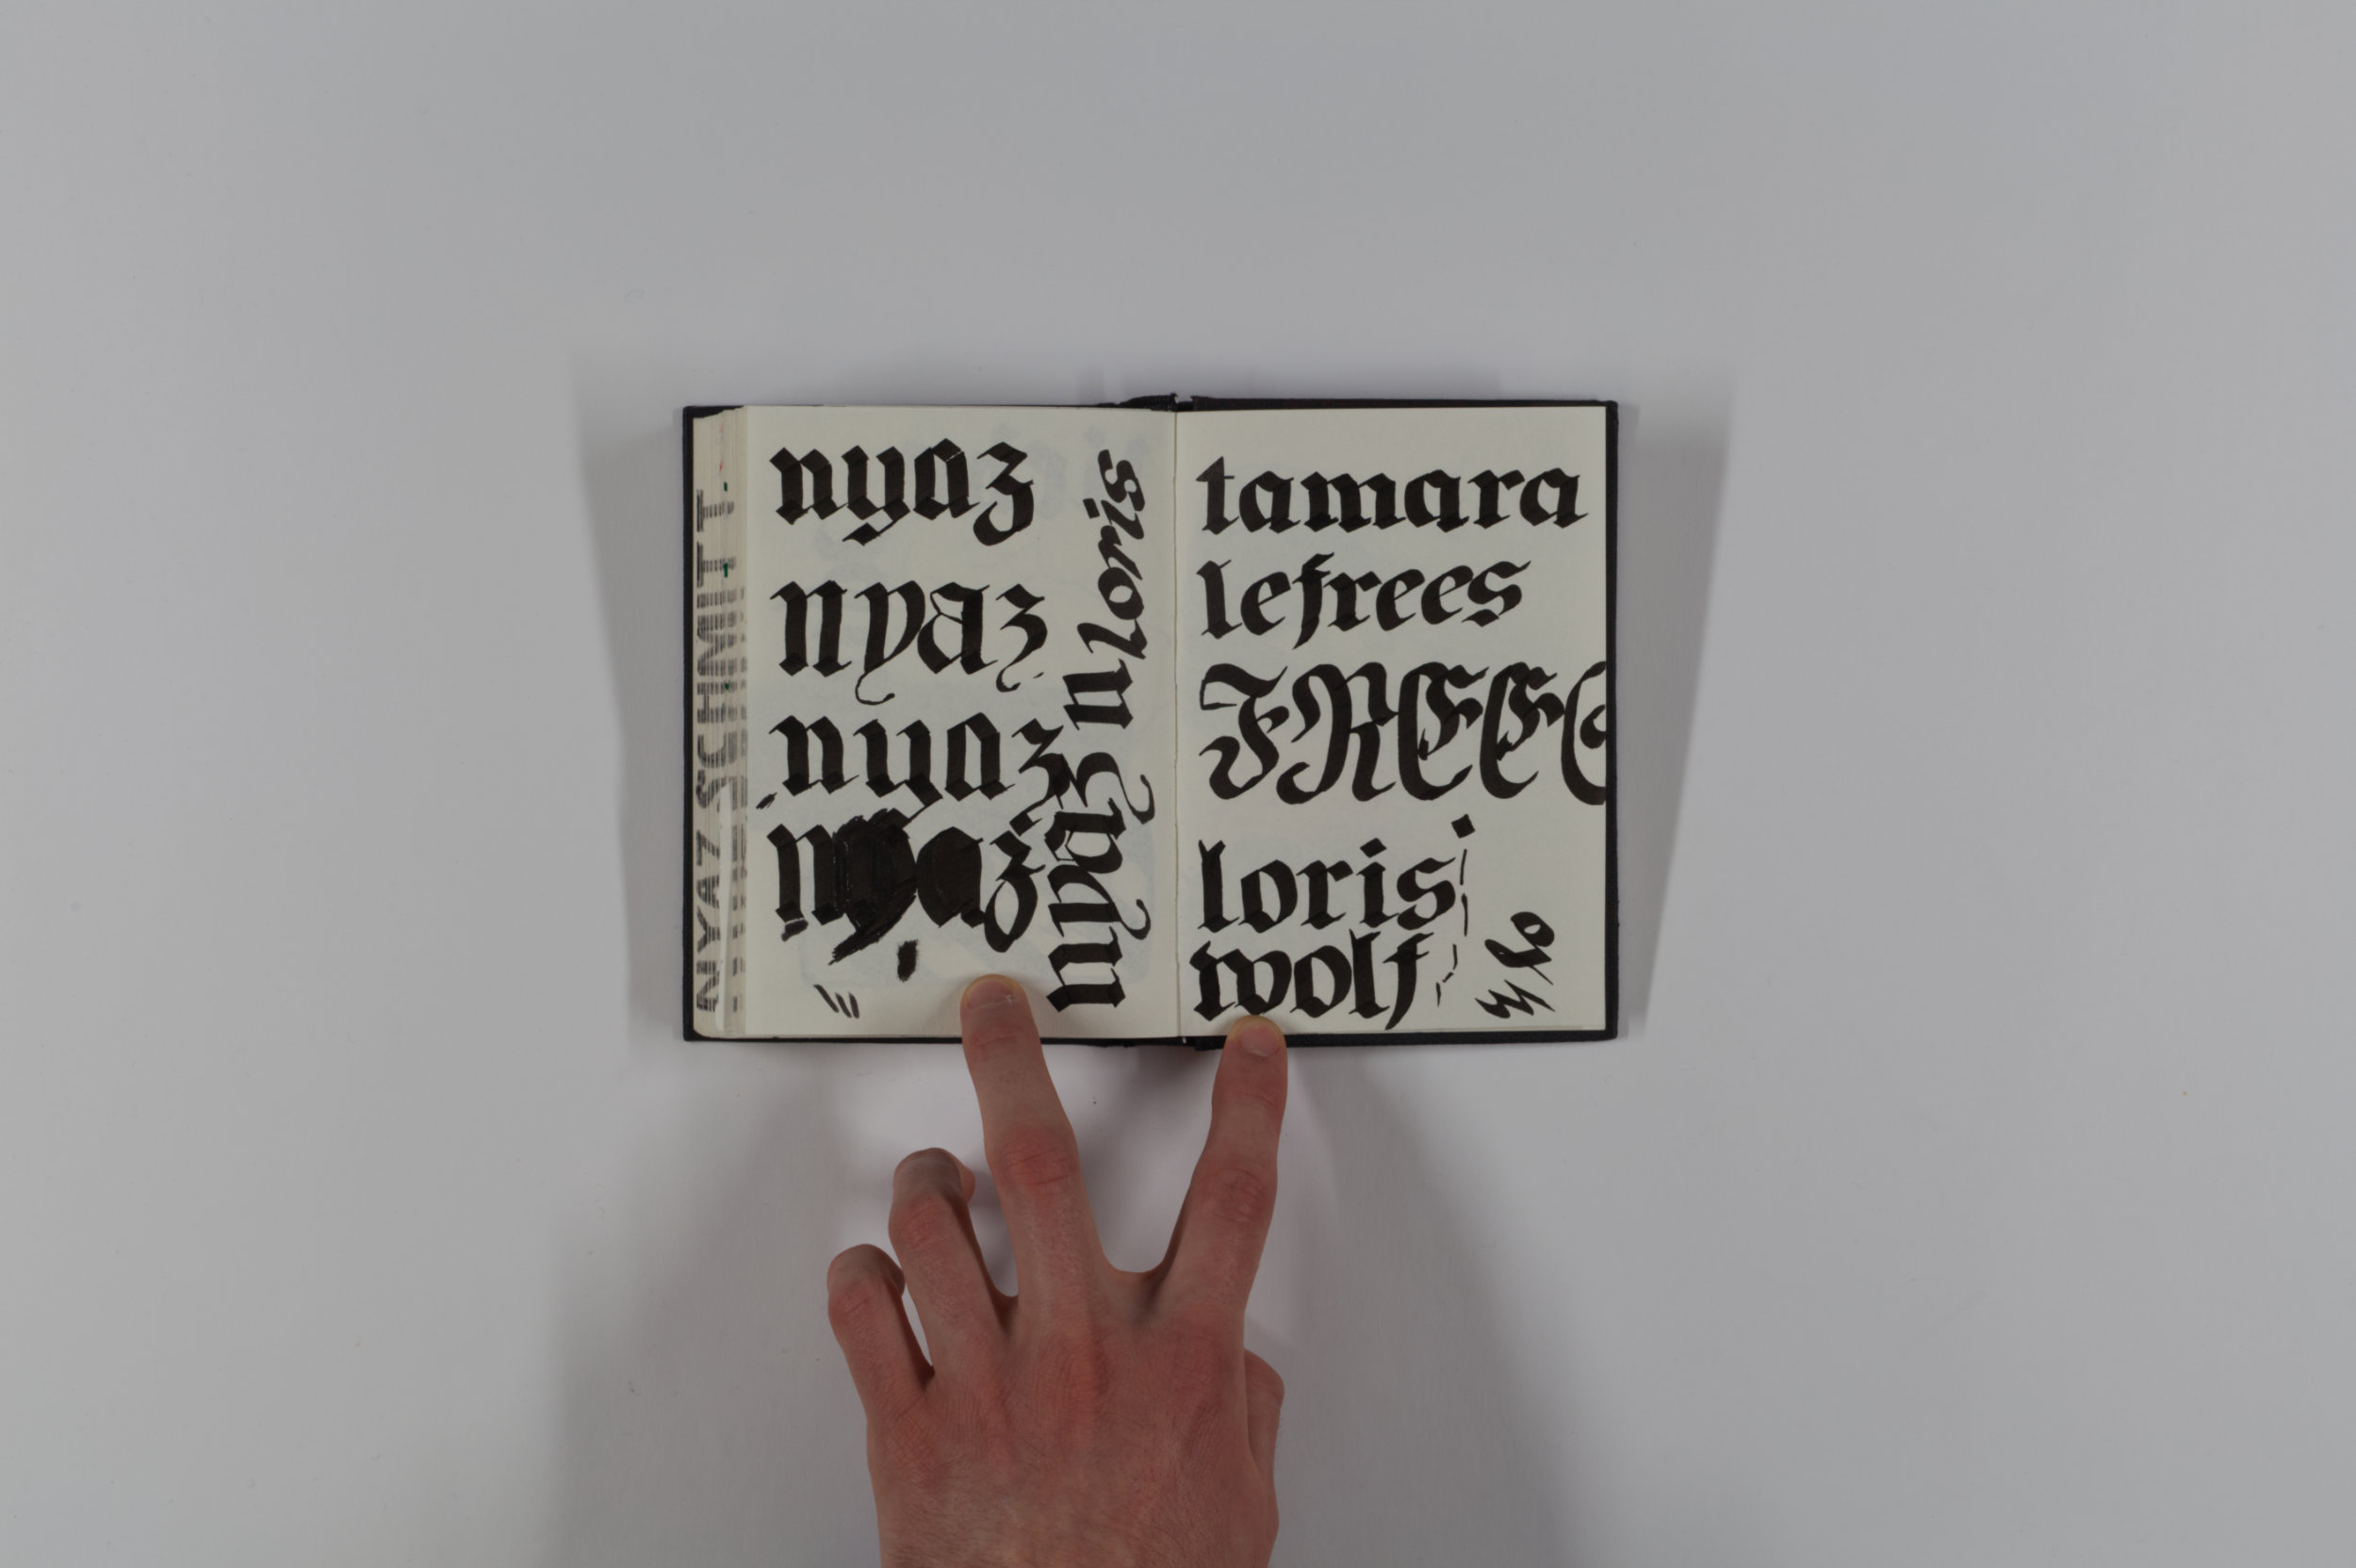 NYAZ SCHMITT
nyaz
nyaz
nyaz
nyaz
nyaz n loris
tamara
lefrees
FREE
loris
wolf